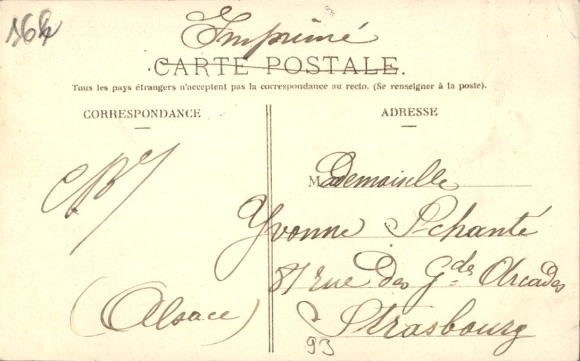 164
Imprimé
CARTE POSTALE.
Tous les pays étrangers n'acceptent pas la correspondance au recto. (Se renseigner à la poste).
CORRESPONDANCE
ADRESSE
Mademoiselle
Yvonne Pchanté
81 rue des Gdes Arcades
(Alsace) Strasbourg
93